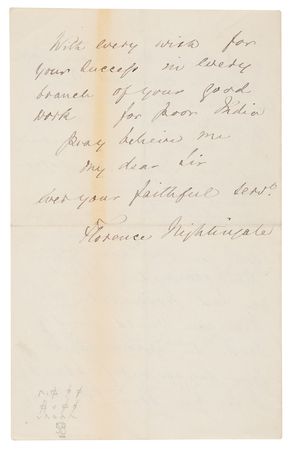 With every wish for
your success in every
branch of your good
work for poor India
pray believe me
my dear Sir
ever your faithful servt
Florence Nightingale